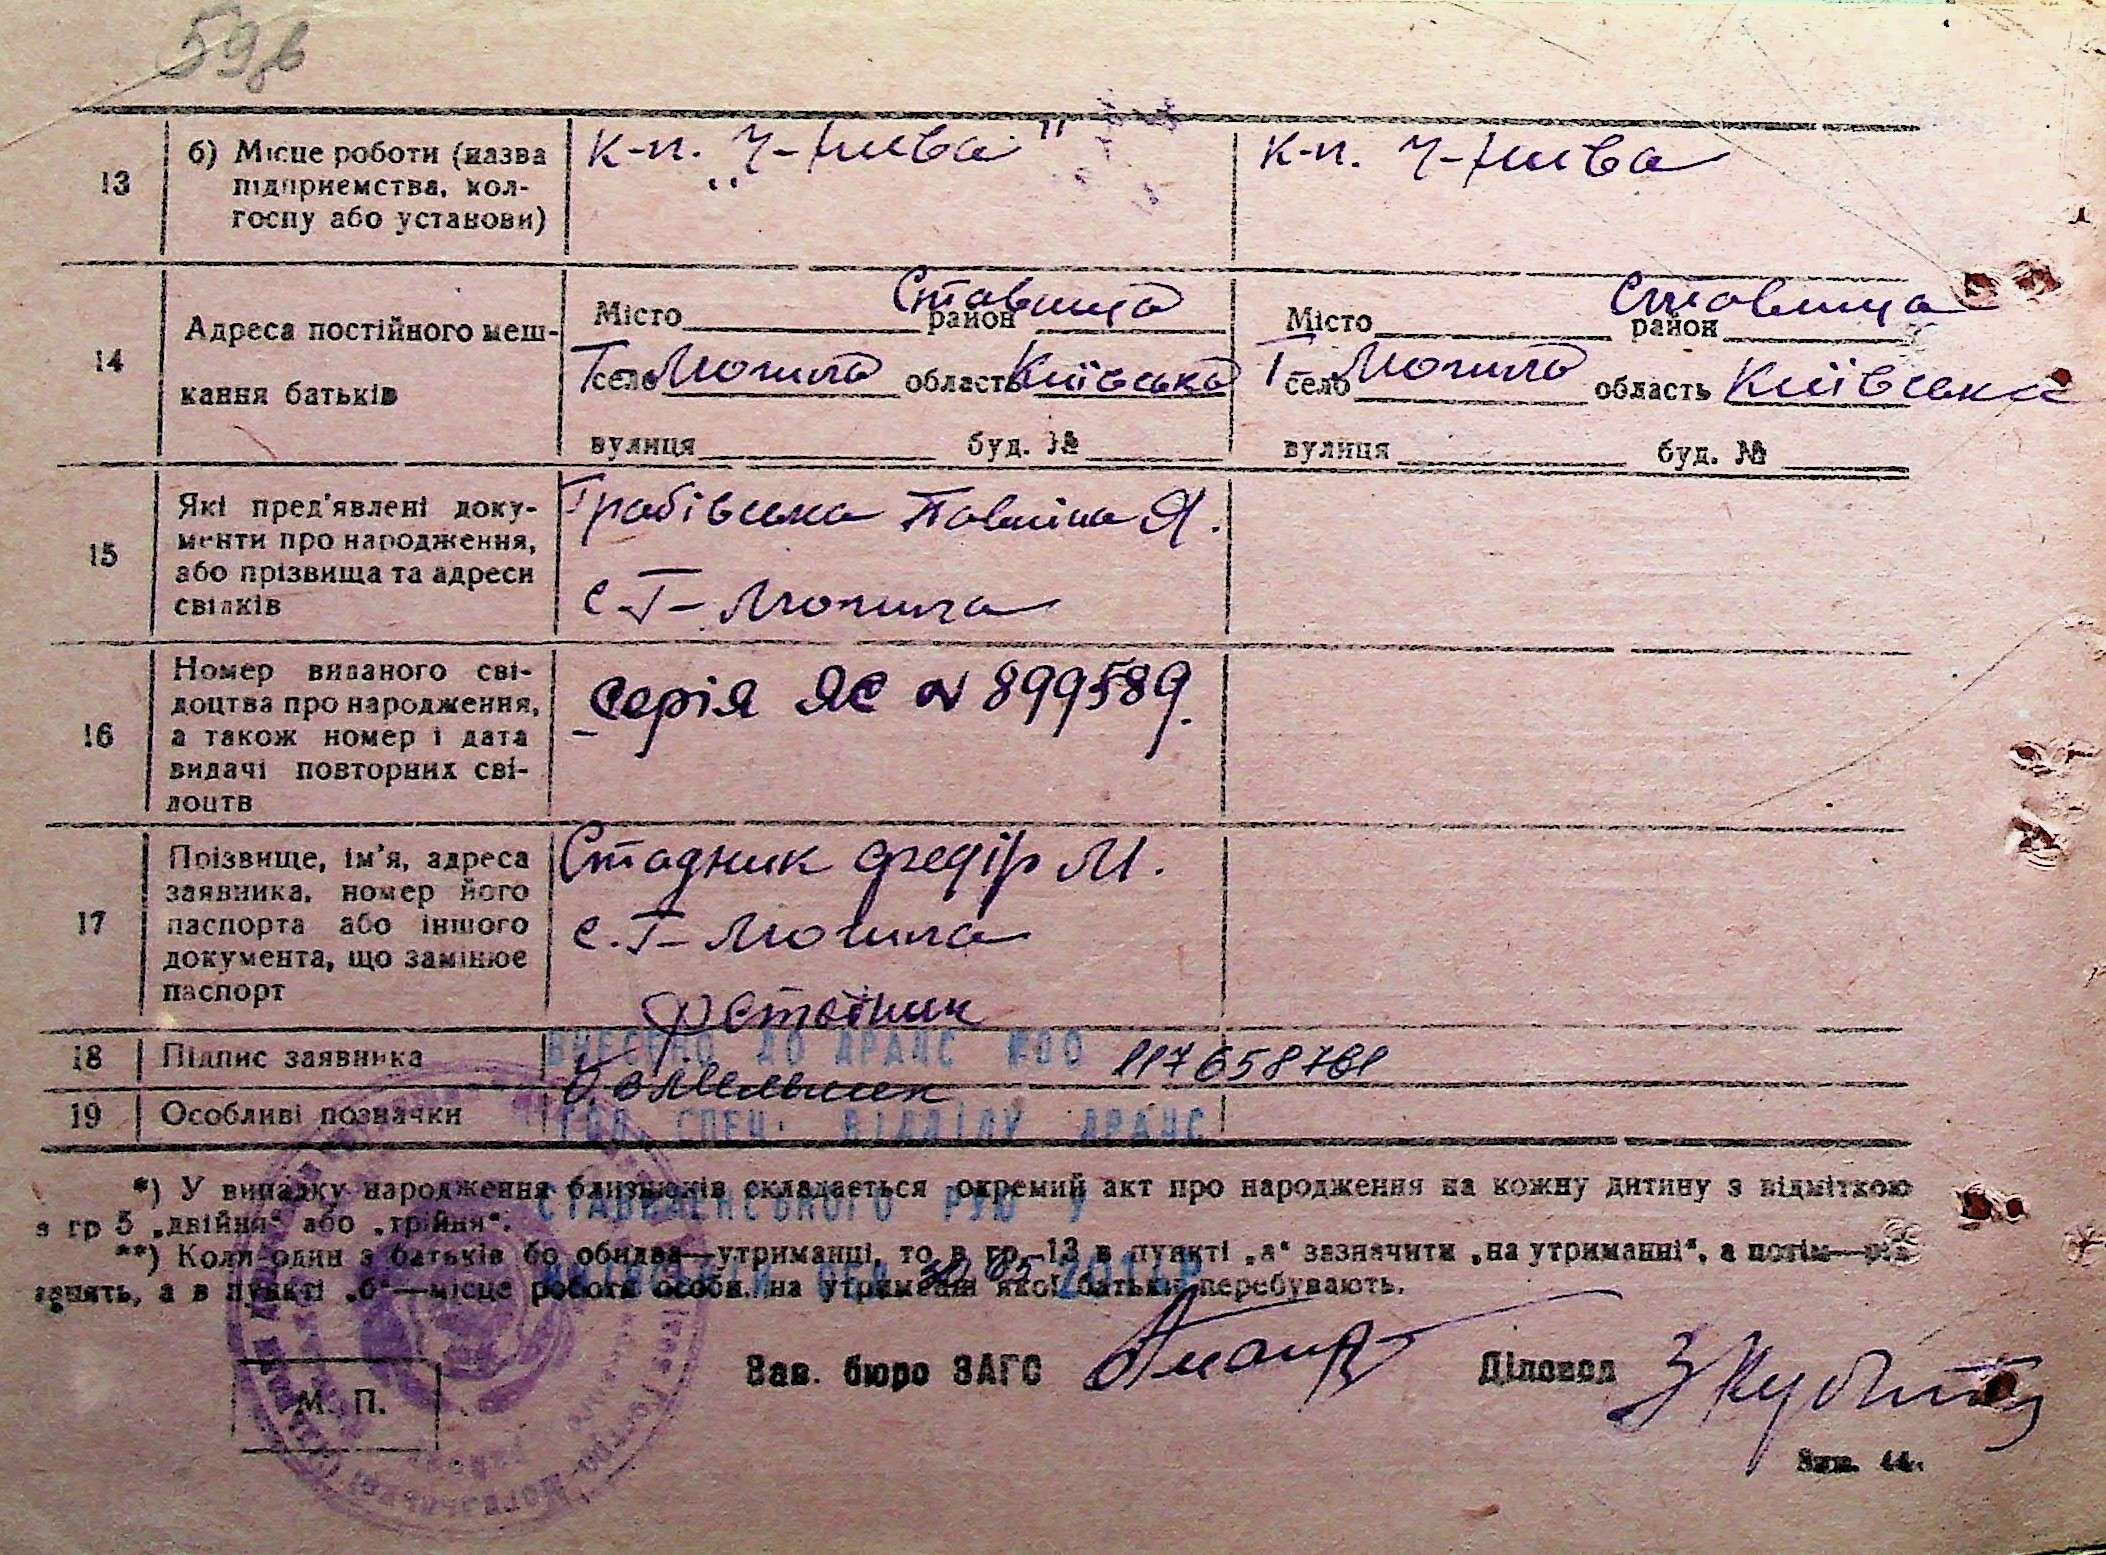 59в
13 б) Місце роботи (назва підприємства, колгоспу або установи) к-п. „Ч-Нива" к-п. Ч-Нива
14 Адреса постійного мешкання батьків
Місто район Ставища Місто район Ставища
село Г-Могила область Київська село Г-Могила область Київська
вулиця буд. № вулиця буд. №
15 Які пред'явлені документи про народження, або прізвища та адреси свідків
Грабівська Павліна Я.
с Г-Могила
16 Номер виданого свідоцтва про народження, а також номер і дата видачі повторних свідоцтв
серія ЯС № 899589.
17 Прізвище, ім'я, адреса заявника, номер його паспорта або іншого документа, що замінює паспорт
Стадник Федір М.
с. Г-Могила
18 Підпис заявника Ф Стадник
ВНЕСЕНО ДО ДРАЦС №00 117658761
19 Особливі позначки
ГОЛ. СПЕЦ. ВІДДІЛУ ДРАЦС
*) У випадку народження близнюків складається окремий акт про народження на кожну дитину з відміткою
СТАВИЩЕНСЬКОГО РУЮ У
в гр 5 „двійня" або „трійня".
**) Коли один з батьків бо обидва—утриманці, то в гр. 13 в пункті „а" зазначити „на утриманні", а потім—
занять, а в пункті „б"—місце роботи особи. на утриманні якої батьки перебувають.
Зав. бюро ЗАГС Діловод
М. П.
Зам. 44.